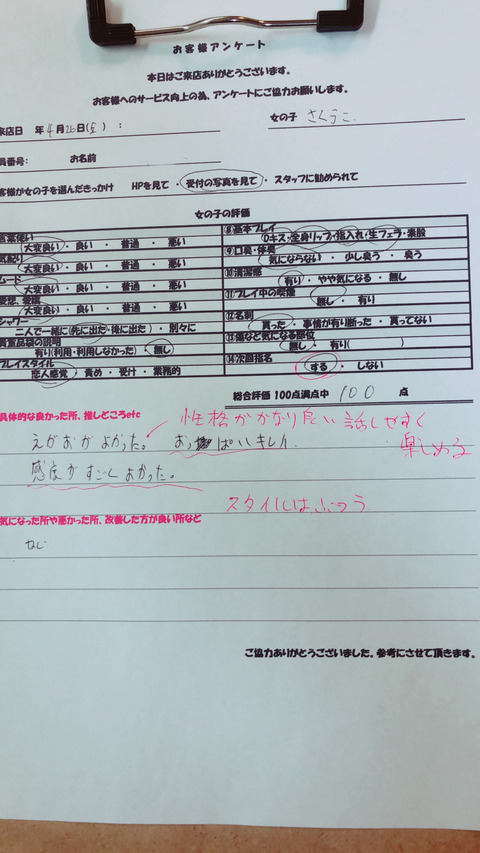 お客様アンケート
本日はご来店ありがとうございます。
お客様へのサービス向上の為、アンケートにご協力お願いします。
来店日 年4月26日(金) : 女の子 さくらこ
員番号: お名前
客様が女の子を選んだきっかけ HPを見て ・ 受付の写真を見て ・ スタッフに勧められて
女の子の評価
言葉使い
大変良い ・ 良い ・ 普通 ・ 悪い
気配り
大変良い ・ 良い ・ 普通 ・ 悪い
ムード
大変良い ・ 良い ・ 普通 ・ 悪い
愛想、愛嬌
大変良い ・ 良い ・ 普通 ・ 悪い
シャワー
二人で一緒に(先に出た・後に出た) ・ 別々に
貴重品袋の説明
有り(利用・利用しなかった) ・ 無し
プレイスタイル
恋人感覚 ・ 責め ・ 受け ・ 業務的
⑧基本プレイ
Dキス・全身リップ・指入れ・生フェラ・素股
⑨口臭・体臭
気にならない ・ 少し臭う ・ 臭う
⑩清潔感
有り ・ やや気になる ・ 無し
⑪プレイ中の喫煙
無し ・ 有り
⑫名刺
貰った ・ 事情が有り断った ・ 貰ってない
⑬傷など気になる部位
無し ・ 有り( )
⑭次回指名
する ・ しない
総合評価 100点満点中 100 点
具体的な良かった所、推しどころetc
性格がかなり良い 話しやすく
楽しめる
えがおがよかった。 おっぱいキレイ.
感度がすごくよかった。
スタイルはふつう
気になった所や悪かった所、改善した方が良い所など
なし
ご協力ありがとうございました。参考にさせて頂きます。